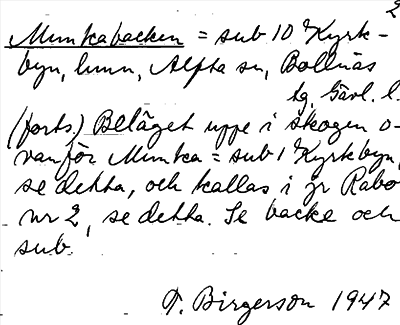 2
Munkabacken = sub 10 Kyrk-
byn, hmn, Alfta sn, Bollnäs
tg, Gävl. l.
(forts.) Beläget uppe i skogen o-
vanför Munka = sub 1 Kyrkbyn,
se detta, och kallas i jr Rabo
nr 2, se detta. Se backe och
sub
T. Birgerson 1947